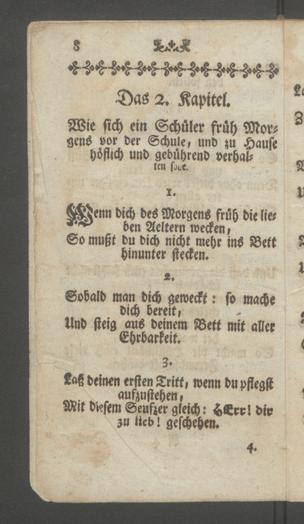 8
Das 2. Kapitel.
Wie sich ein Schüler früh Mor-
gens vor der Schule, und zu Hause
höflich und gebührend verhal-
ten solle.
1.
Wenn dich des Morgens früh die lie-
ben Aeltern wecken,
So mußt du dich nicht mehr ins Bett
hinunter stecken.
2.
Sobald man dich geweckt: so mache
dich bereit,
Und steig aus deinem Bett mit aller
Ehrbarkeit.
3.
Laß deinen ersten Tritt, wenn du pflegst
aufzustehen,
Mit diesem Seufzer gleich: HErr! dir
zu lieb! geschehen.
4.